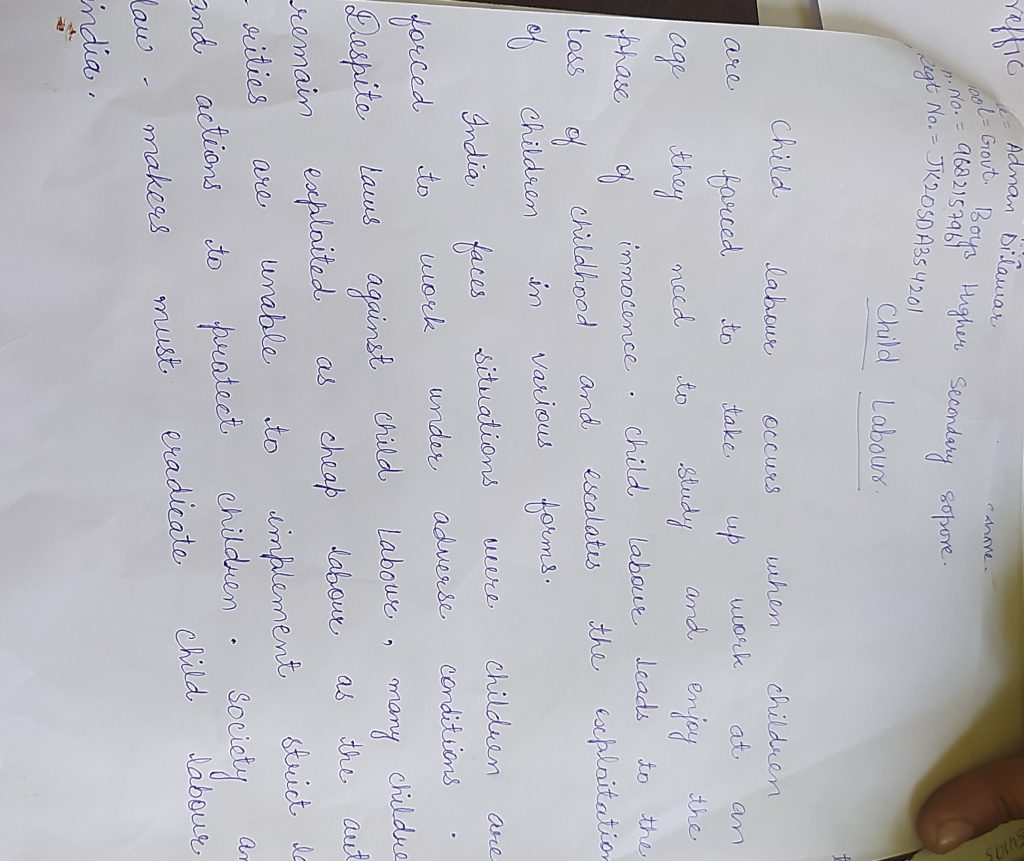 Adnan Dilawar
Govt. Boys Higher Secondary sopore.
Regt No. = JK20SDA354201
Child Labour.
Child labour occurs when children
are forced to take up work at an
age they need to study and enjoy the
phase of innocence. child labour leads to the
loss of childhood and escalates the exploitation
of children in various forms.
India faces situations were children are
forced to work under adverse conditions.
Despite laws against child labour, many
remain exploited as cheap labour as the
are unable to implement strict
and actions to protect children. society
law - makers must eradicate child labour
india.